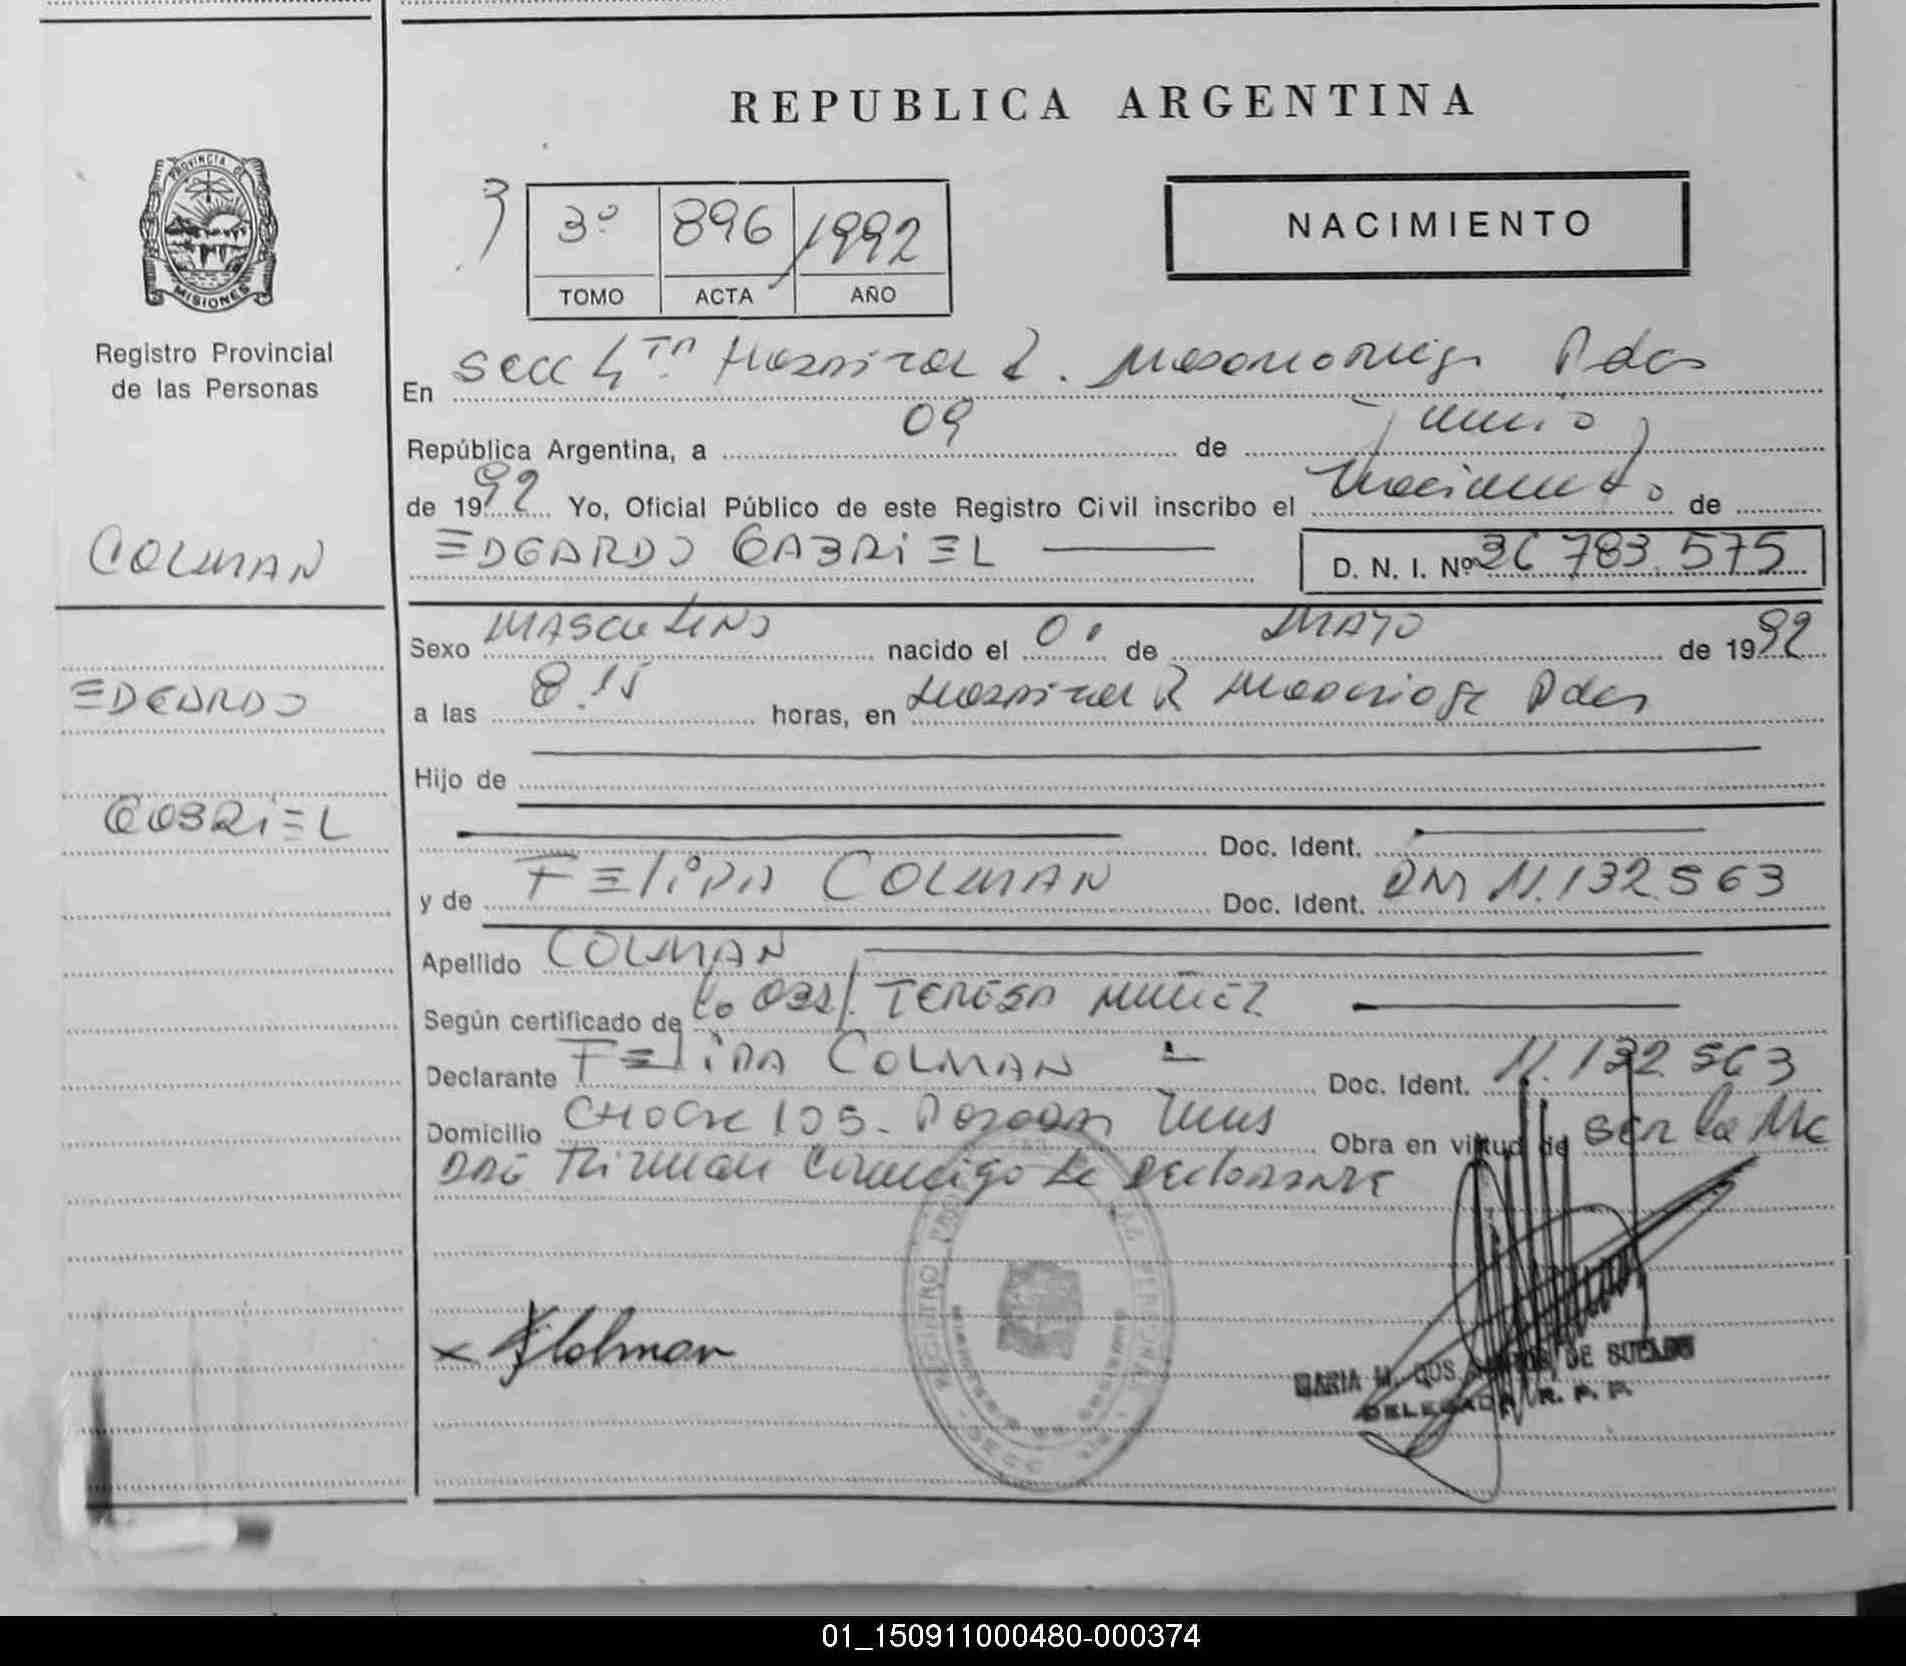 REPUBLICA ARGENTINA
PROVINCIA DE
MISIONES
Registro Provincial
de las Personas
3
3º 896 1992
TOMO ACTA AÑO
NACIMIENTO
En Secc 4ta Hospital R. Pdas
República Argentina, a 09 de Junio
de 1992 Yo, Oficial Público de este Registro Civil inscribo el Nacimiento de
COLMAN
EDGARDO GABRIEL D. N. I. Nº 36 783.575
Sexo MASCULINO nacido el 01 de MAYO de 1992
EDGARDO
a las 8.15 horas, en Hospital R Pdas
Hijo de
GABRIEL
Doc. Ident.
y de FELIPA COLMAN Doc. Ident. DNI 11.132.563
Apellido COLMAN
Según certificado de la Obst. TERESA MUÑEZ
Declarante FELIPA COLMAN Doc. Ident. 11.132.563
Domicilio 105 - Posadas Mnes Obra en virtud de ser la Ma
dre Firman Conmigo La Declarante
x FColman
MARIA M. DOS SANTOS DE SUELDO
DELEGADA R. P. P.
01_150911000480-000374